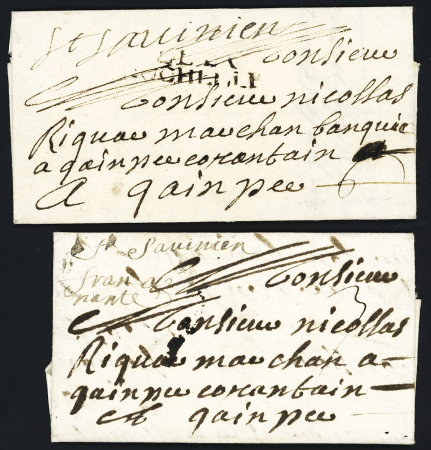 St Savinien
DE LA
ROCHELLE
Monsieur
Monsieur nicollas
Riquar marchan banquie
a qainper corantain
A qainper
St Savinien
fran a
nante
Monsieur
3
Monsieur nicollas
Riquar marchan a
qainper corantain
A qainper